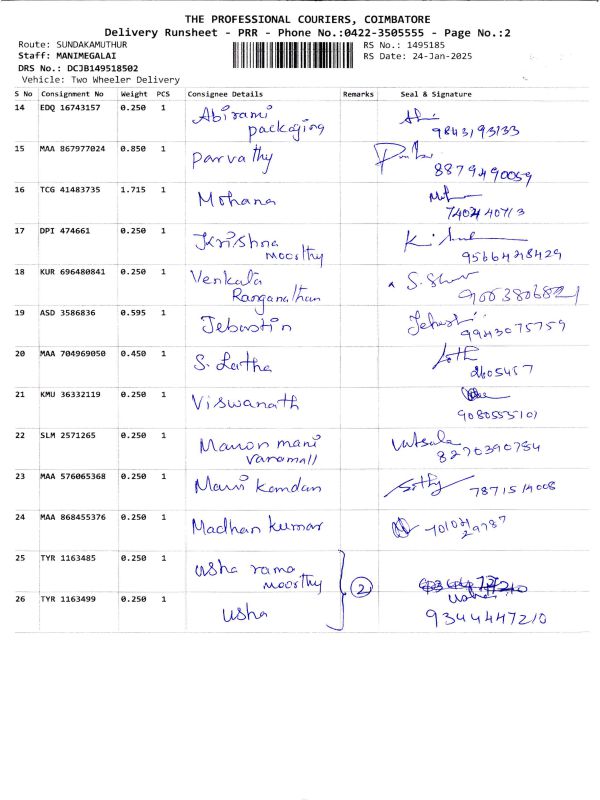 THE PROFESSIONAL COURIERS, COIMBATORE
Delivery Runsheet - PRR - Phone No.:0422-3505555 - Page No.:2
Route: SUNDAKAMUTHUR RS No.: 1495185
Staff: MANIMEGALAI RS Date: 24-Jan-2025
DRS No.: DCJB149518502
Vehicle: Two Wheeler Delivery
S No Consignment No Weight PCS Consignee Details Remarks Seal & Signature
14 EDQ 16743157 0.250 1 Abirami
packaging 9843193133
15 MAA 867977024 0.850 1 Parvathy
8879490059
16 TCG 41483735 1.715 1 Mohana
17 DPI 474661 0.250 1 Krishna
moorthy 9566428429
18 KUR 696480841 0.250 1 Venkata
Ranganathan
19 ASD 3586836 0.595 1 Jebastin
9943075759
20 MAA 704969050 0.450 1 S. Latha
2605457
21 KMU 36332119 0.250 1 Viswanath
9080555101
22 SLM 2571265 0.250 1 Manonmani Vatsala
8270390784
23 MAA 576065368 0.250 1 Mani kandan
24 MAA 868455376 0.250 1 Madhan kumar
25 TYR 1163485 0.250 1 usha rama
moorthy 2
26 TYR 1163499 0.250 1 usha
9344447210